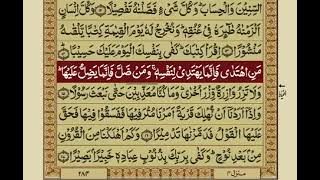 السِّنِیْنَ وَالْحِسَابَ ؕ وَكُلَّ شَیْءٍ فَصَّلْنٰهُ تَفْصِیْلًا ۝ وَكُلَّ اِنْسَانٍ
اَلْزَمْنٰهُ طٰٓئِرَهٗ فِیْ عُنُقِهٖ ؕ وَنُخْرِجُ لَهٗ یَوْمَ الْقِیٰمَةِ كِتٰبًا یَّلْقٰىهُ
مَنْشُوْرًا ۝ اِقْرَاْ كِتٰبَكَ ؕ كَفٰی بِنَفْسِكَ الْیَوْمَ عَلَیْكَ حَسِیْبًا ۝
مَنِ اهْتَدٰی فَاِنَّمَا یَهْتَدِیْ لِنَفْسِهٖ ۚ وَمَنْ ضَلَّ فَاِنَّمَا یَضِلُّ عَلَیْهَا ؕ
وَلَا تَزِرُ وَازِرَةٌ وِّزْرَ اُخْرٰی ؕ وَمَا كُنَّا مُعَذِّبِیْنَ حَتّٰی نَبْعَثَ رَسُوْلًا ۝
وَاِذَاۤ اَرَدْنَاۤ اَنْ نُّهْلِكَ قَرْیَةً اَمَرْنَا مُتْرَفِیْهَا فَفَسَقُوْا فِیْهَا فَحَقَّ
عَلَیْهَا الْقَوْلُ فَدَمَّرْنٰهَا تَدْمِیْرًا ۝ وَكَمْ اَهْلَكْنَا مِنَ الْقُرُوْنِ
مِنْۢ بَعْدِ نُوْحٍ ؕ وَكَفٰی بِرَبِّكَ بِذُنُوْبِ عِبَادِهٖ خَبِیْرًۢا بَصِیْرًا ۝
منزل ۴
۲۸۴